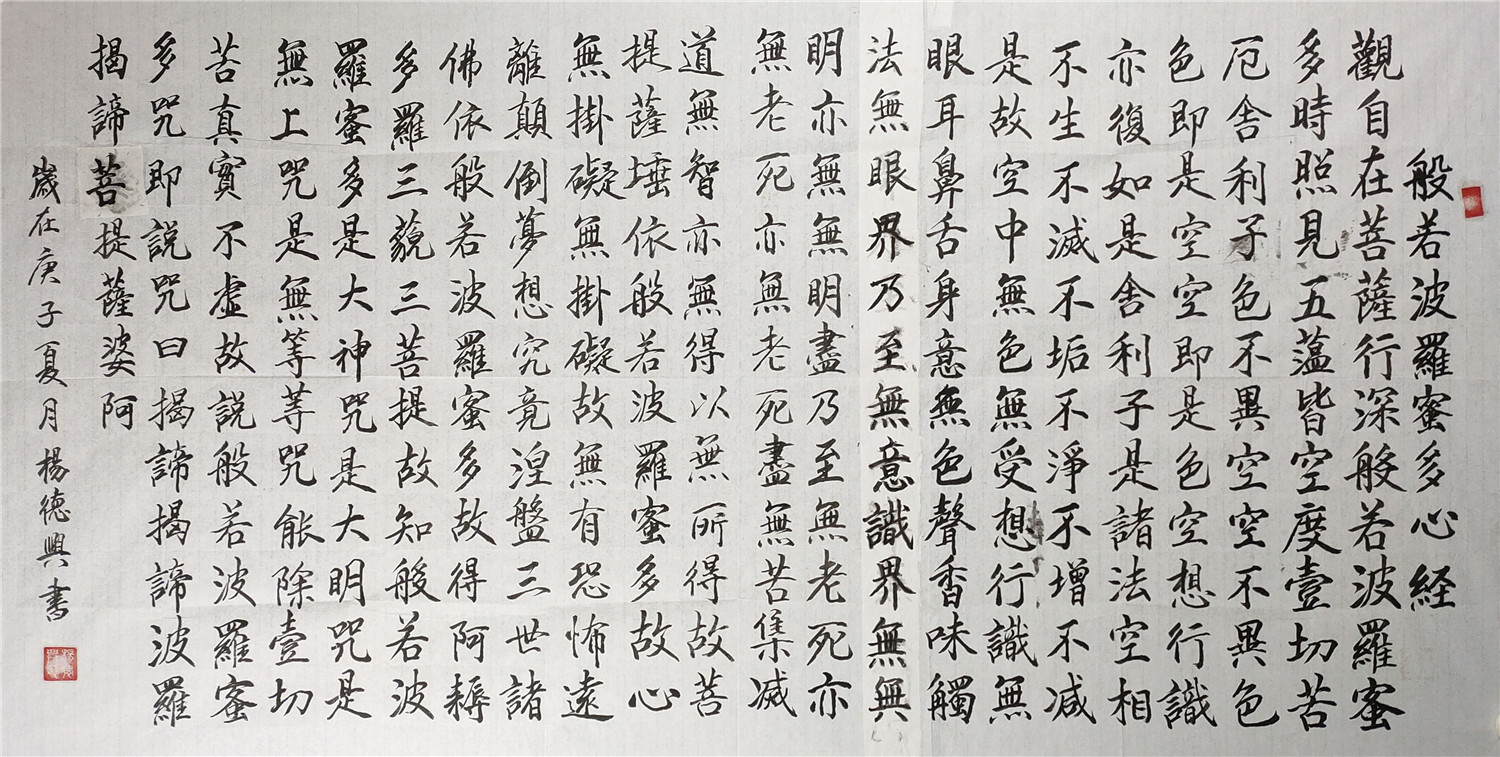 般若波羅蜜多心経
觀自在菩薩行深般若波羅蜜
多時照見五蘊皆空度壹切苦
厄舍利子色不異空空不異色
色即是空空即是色空想行識
亦復如是舍利子是諸法空相
不生不滅不垢不淨不增不减
是故空中無色無受想行識無
眼耳鼻舌身意無色聲香味觸
法無眼界乃至無意識界無無
明亦無無明盡乃至無老死亦
無老死亦無老死盡無苦集减
道無智亦無得以無所得故菩
提薩埵依般若波羅蜜多故心
無掛礙無掛礙故無有恐怖遠
離顛倒夢想究竟涅盤三世諸
佛依般若波羅蜜多故得阿耨
多羅三藐三菩提故知般若波
羅蜜多是大神咒是大明咒是
無上咒是無等等咒能除壹切
苦真實不虛故說般若波羅蜜
多咒即說咒曰揭諦揭諦波羅
揭諦菩提薩婆阿
歲在庚子夏月楊德興書